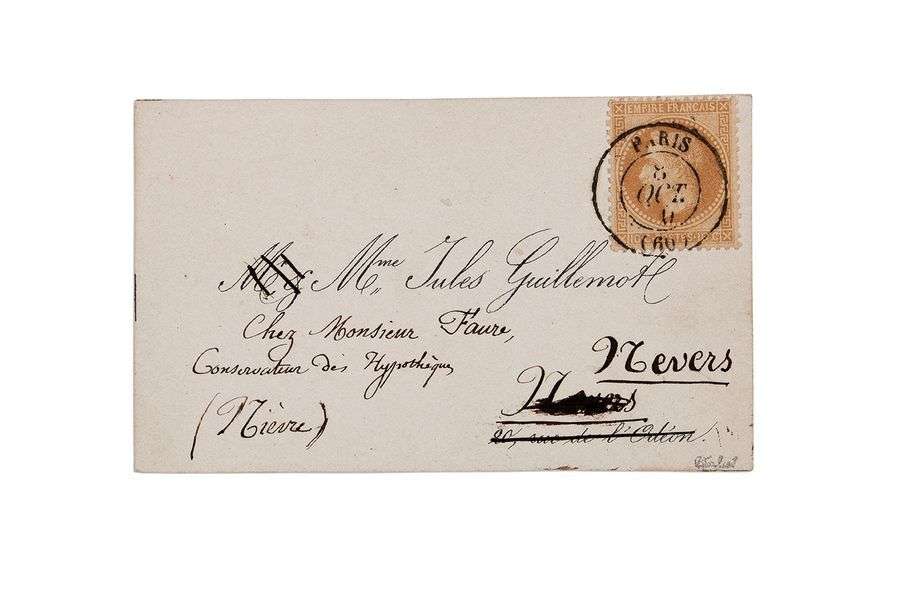 EMPIRE FRANÇAIS
PARIS
8
OCT
(60)
M & Mme Jules Guillemott
Chez Monsieur Faure,
Conservateur des Hypothèques
Nevers
(Nièvre)
Nevers
20, rue de l'Odéon.